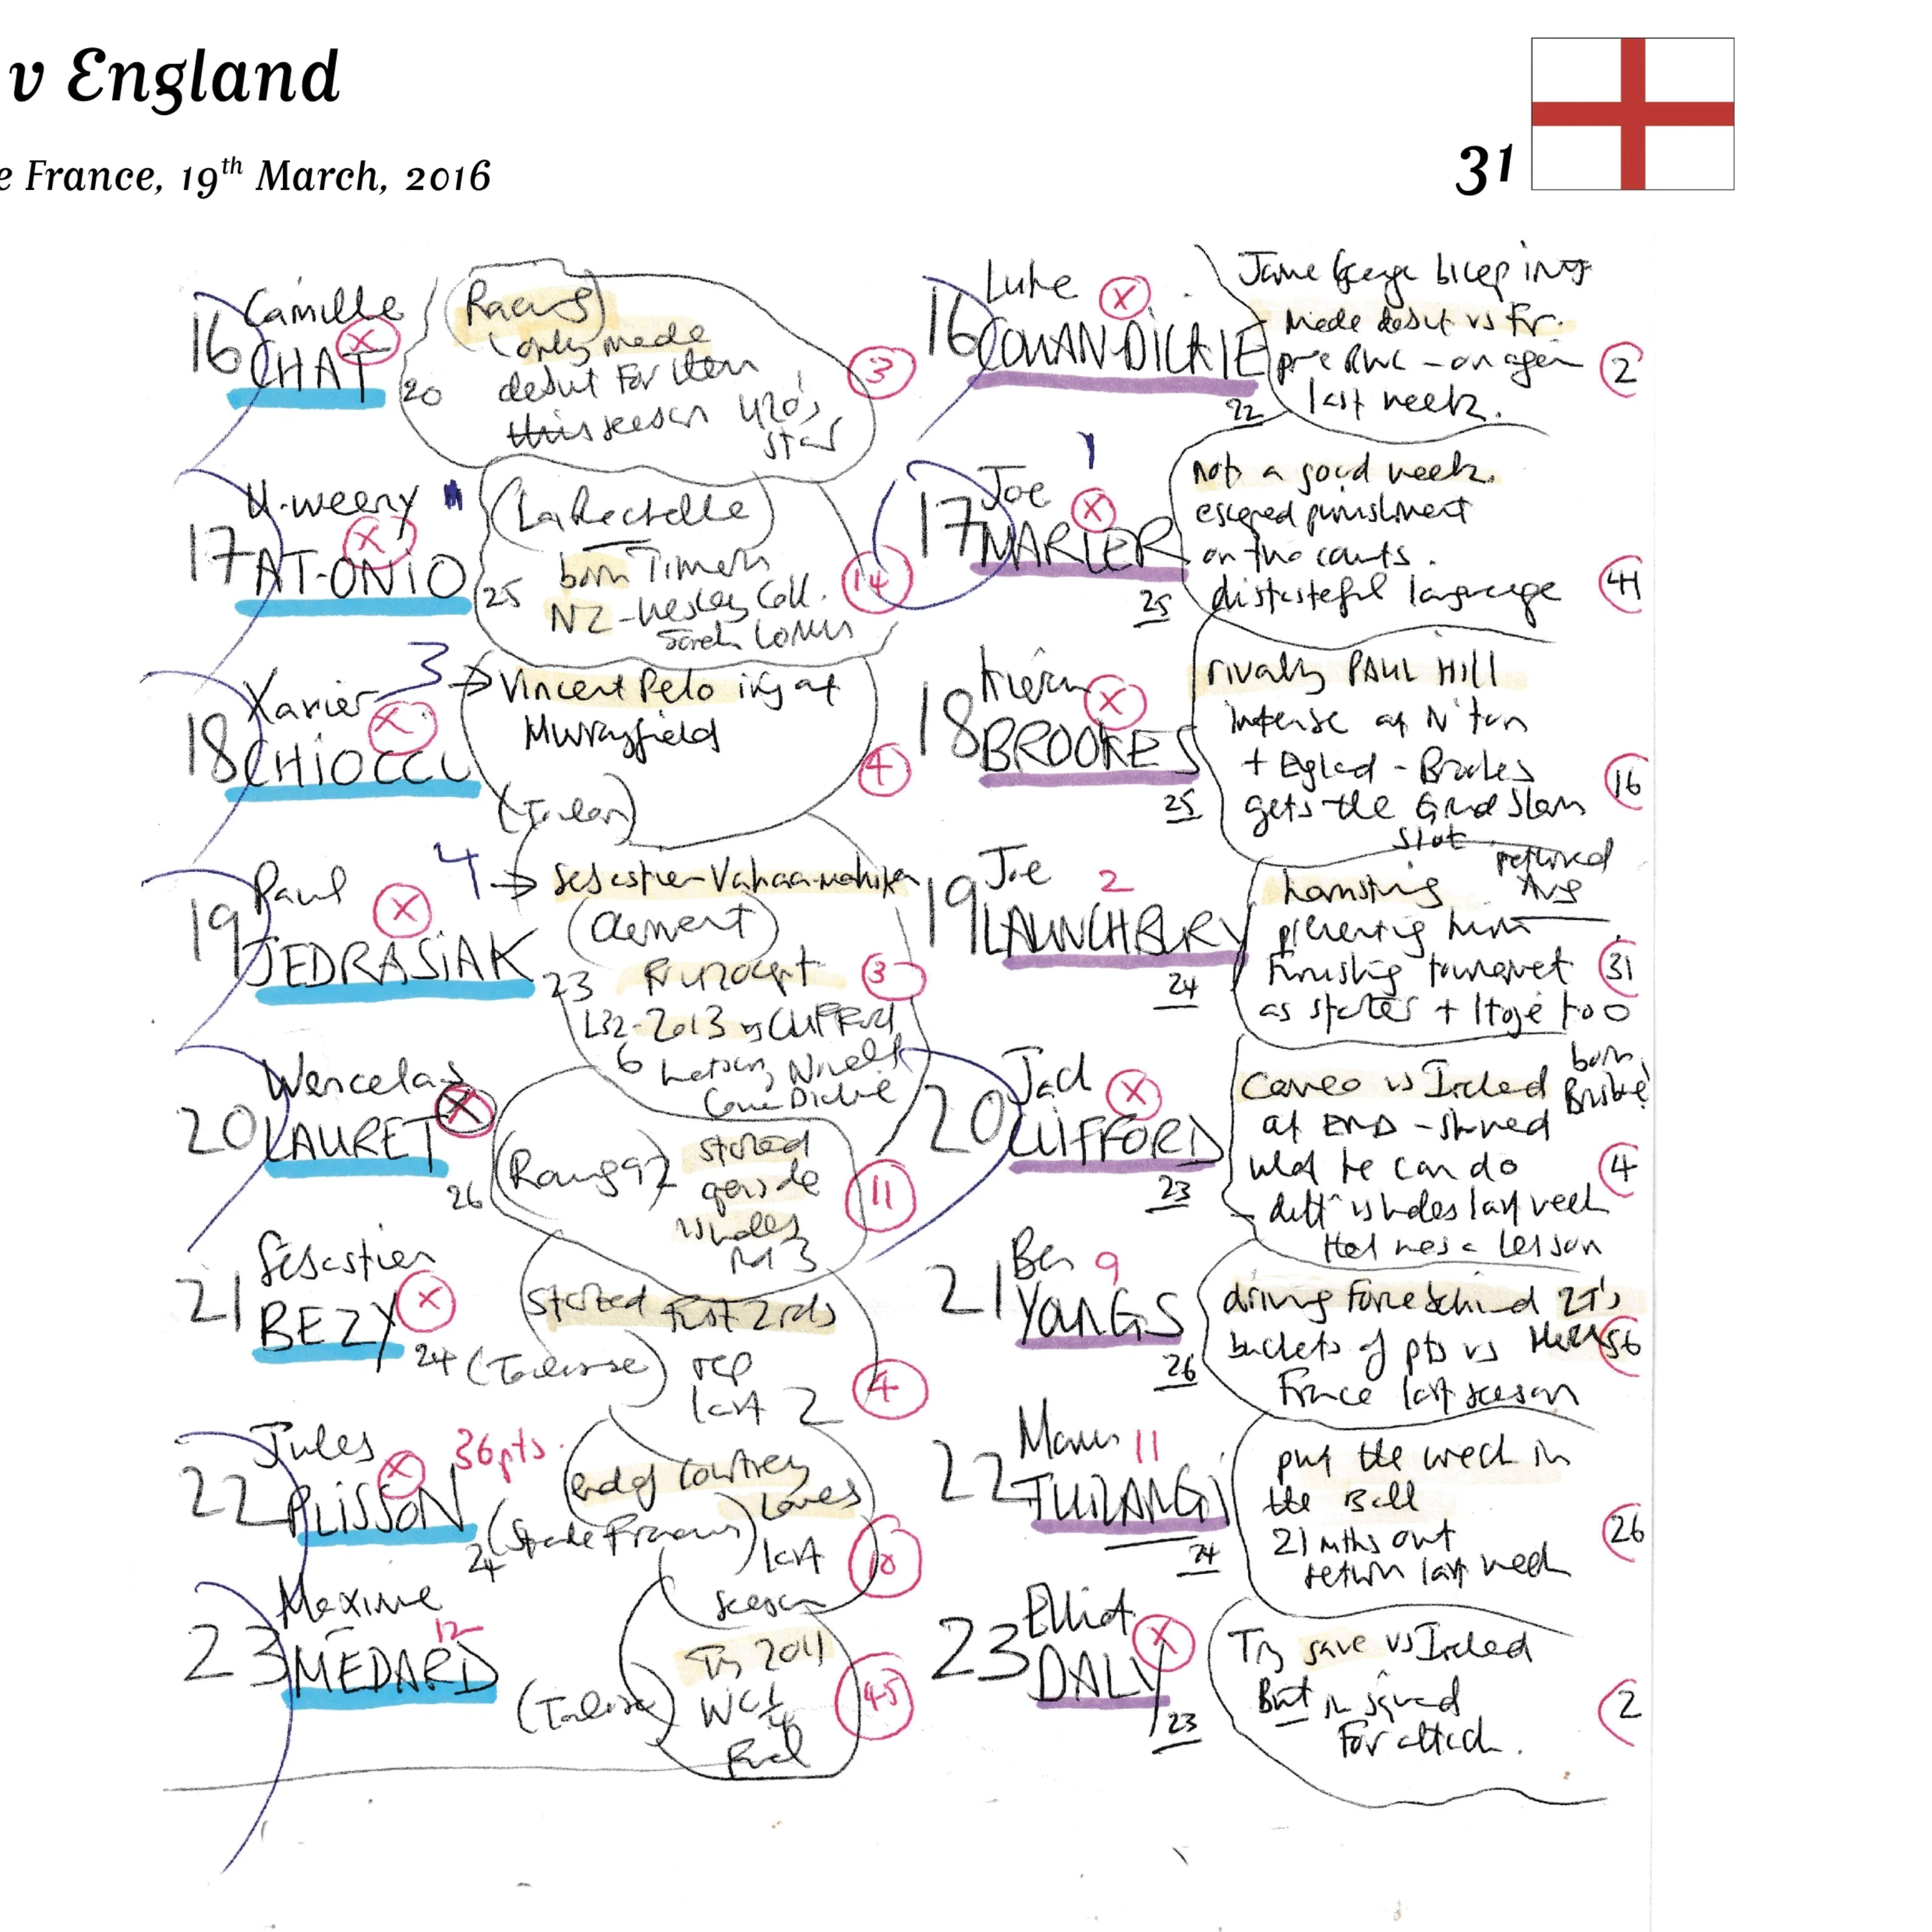 v England
e France, 19th March, 2016
31
16 Camille
CHAT
20
Racing
only made
debut For them
this season U20's
star
3
17 U-weeny
ATONIO
25
(La Rochelle)
born Timaru
NZ - Wesley Coll.
14
18 Xavier 3
CHIOCCI
Vincent Pelo inj at
Murrayfield
(Toulon)
4
19 Paul 4
JEDRASIAK
23
Sebastien Vahaamahina
(Clermont)
3
L32-2013 vs Clifford
6 Watson, Nowell
Cowan Dickie
20 Wenceslas
LAURET
26
(Racing 92)
started
vs Wales
M3
11
21 Sebastien
BEZY
24 (Toulouse)
started first 2 rds
rep
last 2
4
22 Jules
PLISSON
36pts.
24
(Stade Francais)
end of Courtney
Lawes
last
season
10
23 Maxime
MEDARD
12
(Toulouse)
Try 2011
WC 1/4
Final
45
16 Luke
COWAN-DICKIE
22
Jamie George bicep inj
Made debut vs Fr.
pre RWC - on again
last week.
2
17 Joe 1
MARLER
25
Not a good week.
escaped punishment
on two counts.
distasteful language
41
18 Kieran
BROOKES
25
rivalry PAUL HILL
intense at N'ton
+ England - Brookes
gets the Grand Slam
slot
16
19 Joe 2
LAUNCHBURY
24
hamstring
returned
preventing him
finishing tournament
as starter + Itoje too
31
20 Jack
CLIFFORD
23
Cameo vs Ireland
born
Brisbane
at END - showed
what he can do
diff vs Wales last week
that was a lesson
4
21 Ben 9
YOUNGS
26
driving force behind 2T's
buckets of pts vs
France last season
56
22 Manu 11
TUILAGI
24
put the week in
the Bell
21 mths out
return last week
26
23 Elliot
DALY
23
Try save vs Ireland
But in squad
For attack.
2